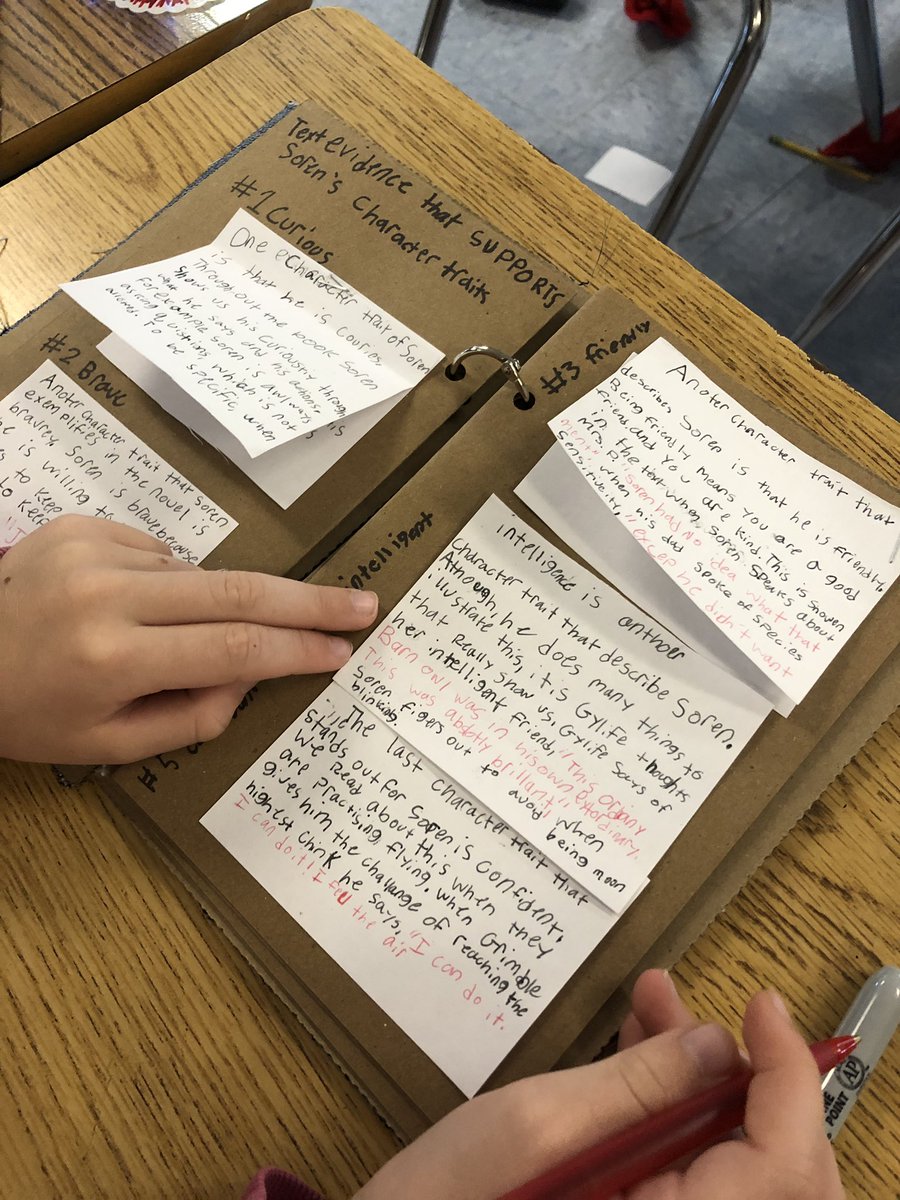 Text evidence that SUPPORTS
Soren's Character traits
#1 Curious
One eCharacter trait of Soren
is that he is Couries.
Throughout the boook Soren
Shows us his Curiousity through
what he says and his actions.
For example Soren is awlways
asking quistions, which is not
allowed. To be specific, when
#2 Brave
Anoter Character
trait that Soren
exemplifies in the novel is
bravrey. Soren is brave becouse
he is willing to
to keep
to keep
"J
#3 friendly
Anoter Character trait that
describes Soren is that he is friendly.
Being friendly means you are a good
friend and you are kind. This is shown
in the text when Soren speaks about
Mrs. P. "Soren had no idea what that
ment" when his dad spoke of species
sensitivity, "excep he didn't want
intelligant
intelligence is anthoer
Character trait that describe Soren.
Although he does many things to
illustrate this, it is Gylfie thoughts
that Really show us, Gylfie says of
her intelligent friend, "This ordiany
Barn owl was in his own extordinary.
This was abdbtly brillant!" when
Soren figers out to avoid being moon
blinkids.
#5
The last character trait that
stands out for Soren is Confident.
We Read about this when they
are practising, flying. when Grimble
gives him the challange of reaching the
highest chink he says, "I can do it.
I can do it! I feel the air
AP
POINT